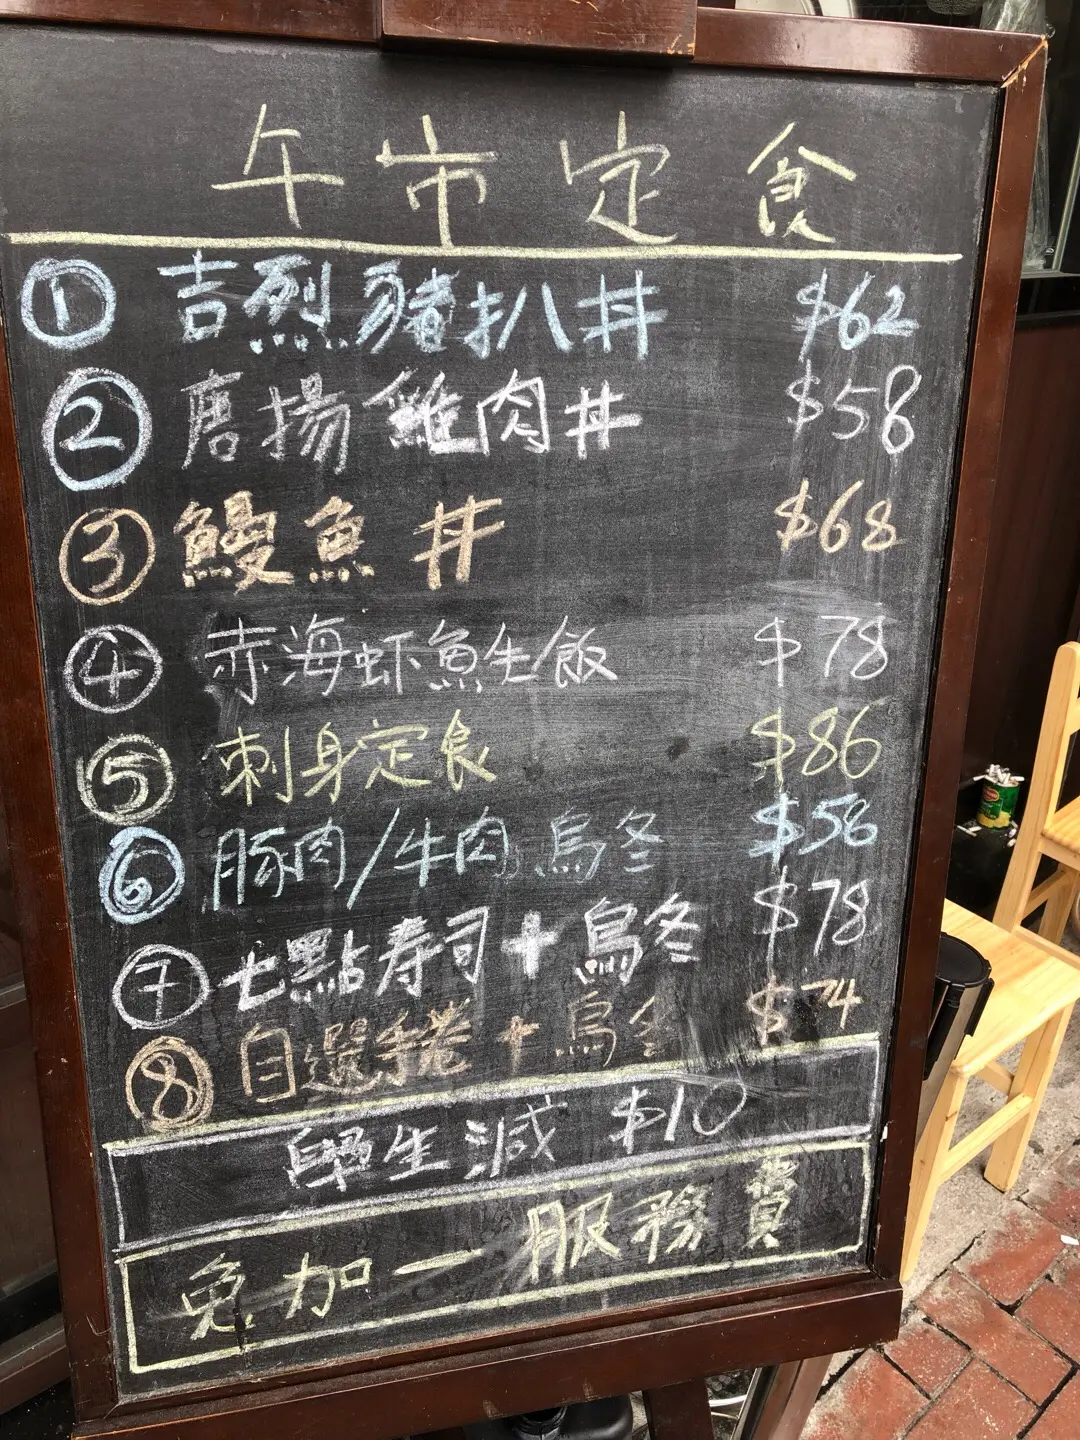 午市定食
① 吉烈豬扒丼 $62
② 唐揚雞肉丼 $58
③ 鰻魚丼 $68
④ 赤海虾魚生飯 $78
⑤ 刺身定食 $86
⑥ 豚肉/牛肉烏冬 $58
⑦ 七點寿司+烏冬 $78
⑧ 自選手卷+烏冬 $74
學生減 $10
免加一服務費